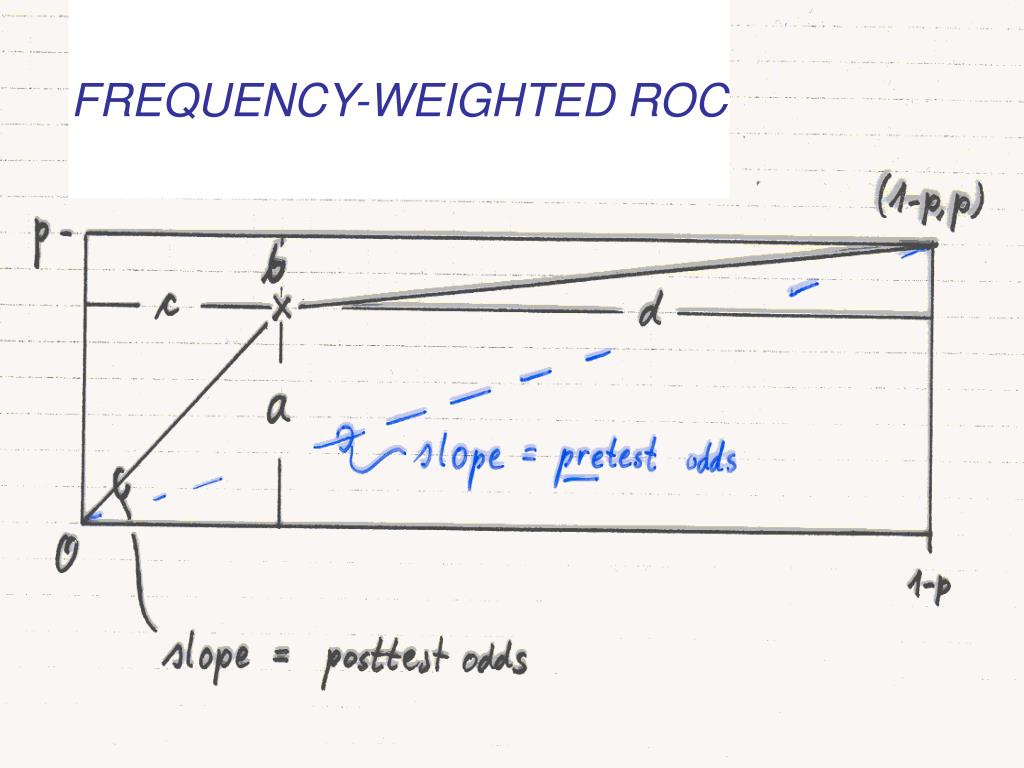 FREQUENCY-WEIGHTED ROC
(1-p, p)
p -
b
c x d
a
slope = pretest odds
0
1-p
slope = posttest odds